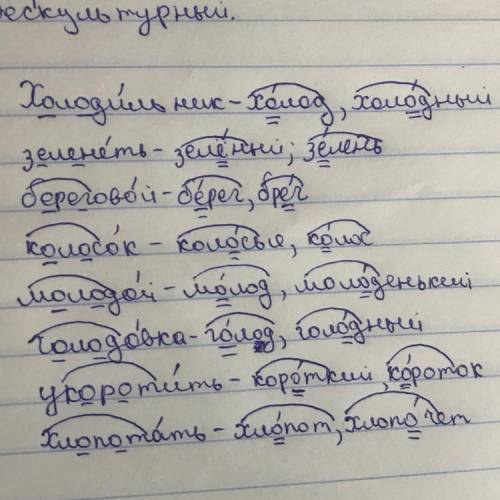 ескультурный.
Холоди́льник - хо́лод, холо́дный
зелене́ть - зелёный; зе́лень
берегово́й - бе́рег, бре́г
колосо́к - коло́сья, ко́лос
молодо́й - мо́лод, моло́денький
голодо́вка - го́лод, голо́дный
укороти́ть - коро́ткий, ко́роток
хлопота́ть - хло́пот, хлопо́чет